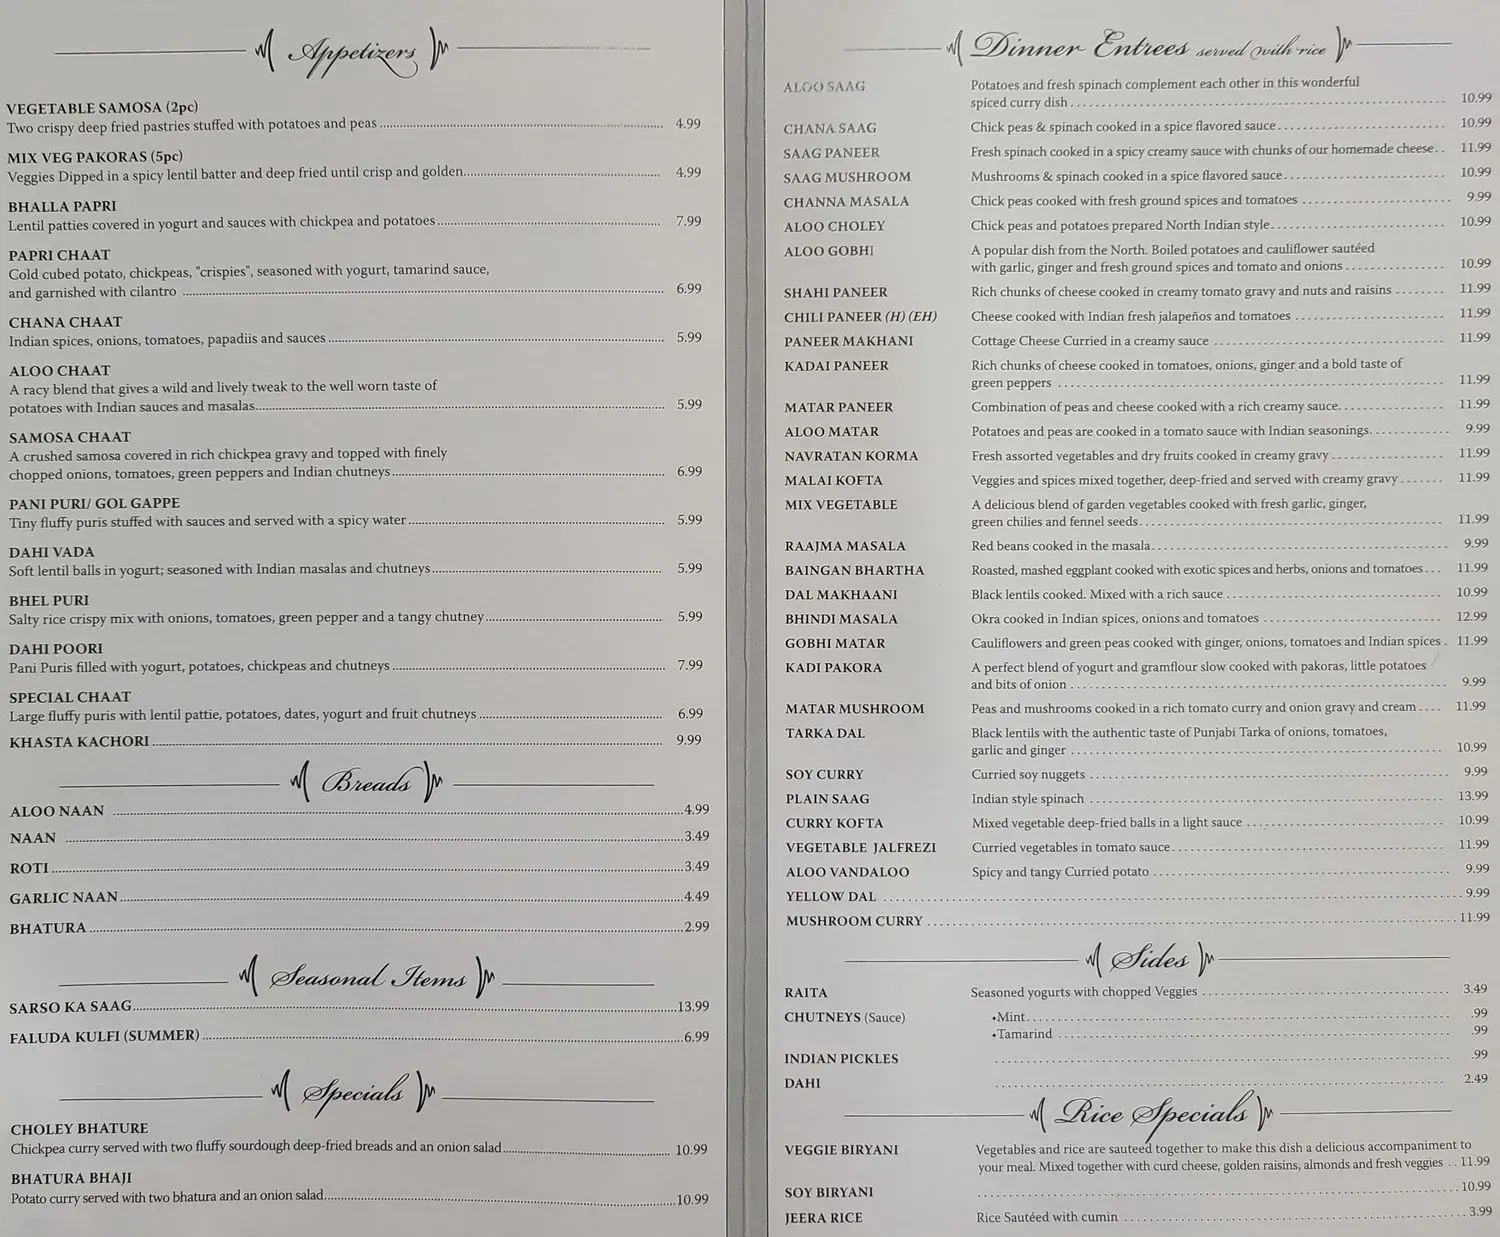 Appetizers
VEGETABLE SAMOSA (2pc)
Two crispy deep fried pastries stuffed with potatoes and peas 4.99
MIX VEG PAKORAS (5pc)
Veggies Dipped in a spicy lentil batter and deep fried until crisp and golden 4.99
BHALLA PAPRI
Lentil patties covered in yogurt and sauces with chickpea and potatoes 7.99
PAPRI CHAAT
Cold cubed potato, chickpeas, "crispies", seasoned with yogurt, tamarind sauce,
and garnished with cilantro 6.99
CHANA CHAAT
Indian spices, onions, tomatoes, papadiis and sauces 5.99
ALOO CHAAT
A racy blend that gives a wild and lively tweak to the well worn taste of
potatoes with Indian sauces and masalas 5.99
SAMOSA CHAAT
A crushed samosa covered in rich chickpea gravy and topped with finely
chopped onions, tomatoes, green peppers and Indian chutneys 6.99
PANI PURI/ GOL GAPPE
Tiny fluffy puris stuffed with sauces and served with a spicy water 5.99
DAHI VADA
Soft lentil balls in yogurt; seasoned with Indian masalas and chutneys 5.99
BHEL PURI
Salty rice crispy mix with onions, tomatoes, green pepper and a tangy chutney 5.99
DAHI POORI
Pani Puris filled with yogurt, potatoes, chickpeas and chutneys 7.99
SPECIAL CHAAT
Large fluffy puris with lentil pattie, potatoes, dates, yogurt and fruit chutneys 6.99
KHASTA KACHORI 9.99
Breads
ALOO NAAN 4.99
NAAN 3.49
ROTI 3.49
GARLIC NAAN 4.49
BHATURA 2.99
Seasonal Items
SARSO KA SAAG 13.99
FALUDA KULFI (SUMMER) 6.99
Specials
CHOLEY BHATURE
Chickpea curry served with two fluffy sourdough deep-fried breads and an onion salad 10.99
BHATURA BHAJI
Potato curry served with two bhatura and an onion salad 10.99
Dinner Entrees served with rice
ALOO SAAG Potatoes and fresh spinach complement each other in this wonderful
spiced curry dish 10.99
CHANA SAAG Chick peas & spinach cooked in a spice flavored sauce 10.99
SAAG PANEER Fresh spinach cooked in a spicy creamy sauce with chunks of our homemade cheese 11.99
SAAG MUSHROOM Mushrooms & spinach cooked in a spice flavored sauce 10.99
CHANNA MASALA Chick peas cooked with fresh ground spices and tomatoes 9.99
ALOO CHOLEY Chick peas and potatoes prepared North Indian style 10.99
ALOO GOBHI A popular dish from the North. Boiled potatoes and cauliflower sautéed
with garlic, ginger and fresh ground spices and tomato and onions 10.99
SHAHI PANEER Rich chunks of cheese cooked in creamy tomato gravy and nuts and raisins 11.99
CHILI PANEER (H) (EH) Cheese cooked with Indian fresh jalapeños and tomatoes 11.99
PANEER MAKHANI Cottage Cheese Curried in a creamy sauce 11.99
KADAI PANEER Rich chunks of cheese cooked in tomatoes, onions, ginger and a bold taste of
green peppers 11.99
MATAR PANEER Combination of peas and cheese cooked with a rich creamy sauce 11.99
ALOO MATAR Potatoes and peas are cooked in a tomato sauce with Indian seasonings 9.99
NAVRATAN KORMA Fresh assorted vegetables and dry fruits cooked in creamy gravy 11.99
MALAI KOFTA Veggies and spices mixed together, deep-fried and served with creamy gravy 11.99
MIX VEGETABLE A delicious blend of garden vegetables cooked with fresh garlic, ginger,
green chilies and fennel seeds 11.99
RAAJMA MASALA Red beans cooked in the masala 9.99
BAINGAN BHARTHA Roasted, mashed eggplant cooked with exotic spices and herbs, onions and tomatoes 11.99
DAL MAKHAANI Black lentils cooked. Mixed with a rich sauce 10.99
BHINDI MASALA Okra cooked in Indian spices, onions and tomatoes 12.99
GOBHI MATAR Cauliflowers and green peas cooked with ginger, onions, tomatoes and Indian spices 11.99
KADI PAKORA A perfect blend of yogurt and gramflour slow cooked with pakoras, little potatoes
and bits of onion 9.99
MATAR MUSHROOM Peas and mushrooms cooked in a rich tomato curry and onion gravy and cream 11.99
TARKA DAL Black lentils with the authentic taste of Punjabi Tarka of onions, tomatoes,
garlic and ginger 10.99
SOY CURRY Curried soy nuggets 9.99
PLAIN SAAG Indian style spinach 13.99
CURRY KOFTA Mixed vegetable deep-fried balls in a light sauce 10.99
VEGETABLE JALFREZI Curried vegetables in tomato sauce 11.99
ALOO VANDALOO Spicy and tangy Curried potato 9.99
YELLOW DAL 9.99
MUSHROOM CURRY 11.99
Sides
RAITA Seasoned yogurts with chopped Veggies 3.49
CHUTNEYS (Sauce) •Mint .99
•Tamarind .99
INDIAN PICKLES .99
DAHI 2.49
Rice Specials
VEGGIE BIRYANI Vegetables and rice are sauteed together to make this dish a delicious accompaniment to
your meal. Mixed together with curd cheese, golden raisins, almonds and fresh veggies 11.99
SOY BIRYANI 10.99
JEERA RICE Rice Sautéed with cumin 3.99